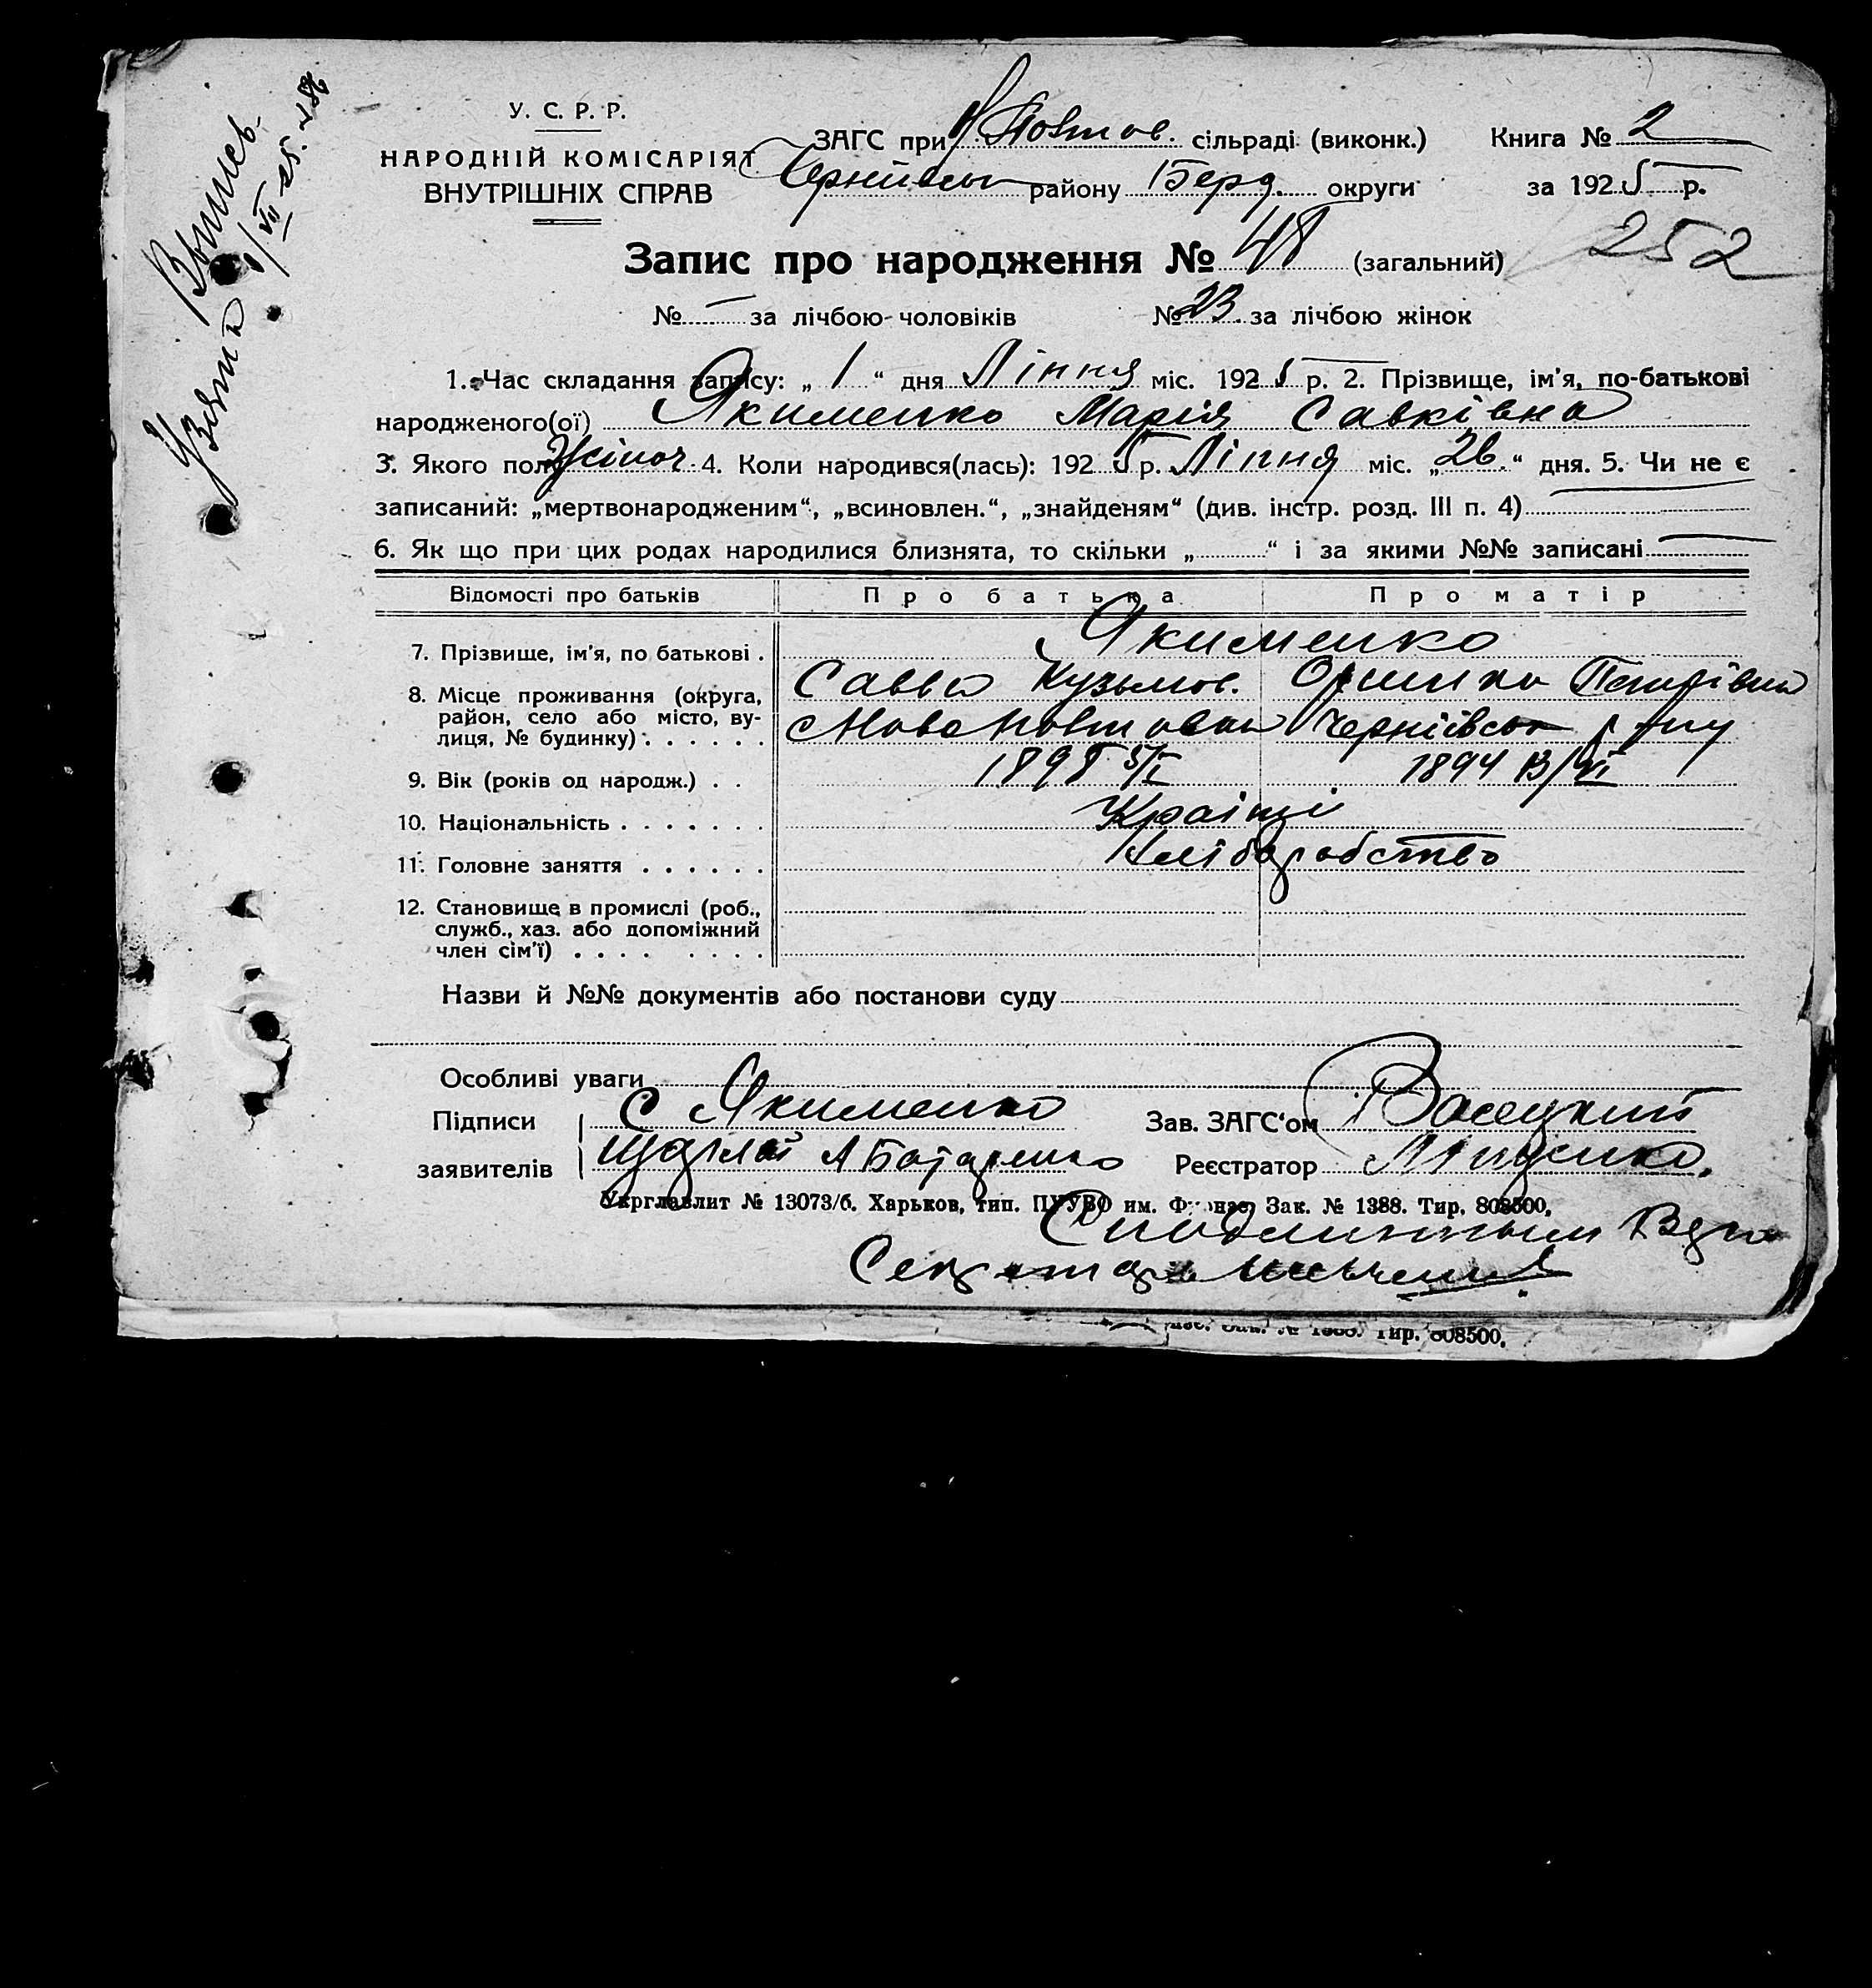 Выпись
Узята 1/VII 25.
У. С. Р. Р.
НАРОДНІЙ КОМІСАРІЯТ
ВНУТРІШНІХ СПРАВ
ЗАГС при Н Повтов. сільраді (виконк.) Книга № 2
району Берд. округи за 1925 р.
Запис про народження № 48 (загальний) 252
№ — за лічбою чоловіків № 23. за лічбою жінок
1. Час складання запису: „ 1 “ дня Липня міс. 1925 р. 2. Прізвище, ім'я, по-батькові
народженого(ої) Якименко Марія Савківна
3. Якого полу Жіноч. 4. Коли народився(лась): 1925 р. Липня міс. „ 26. “ дня. 5. Чи не є
записаний: „мертвонародженим“, „всиновлен.“, „знайденям“ (див. інстр. розд. III п. 4)
6. Як що при цих родах народилися близнята, то скільки „ “ і за якими №№ записані
Відомості про батьків Про батька Про матір
7. Прізвище, ім'я, по батькові . Якименко
8. Місце проживання (округа, Савва Кузьмов. Оришка Петрівна
район, село або місто, ву-
лиця, № будинку) . . . . . . Ново Повтовськ Черніївськ р-ну
9. Вік (років од народж.) . . 1898 5/I 1894 13/VI
10. Національність . . . . . . . Країнці
11. Головне заняття . . . . . . Хліборобство
12. Становище в промислі (роб.,
служб., хаз. або допоміжний
член сім'ї) . . . . . . . .
Назви й №№ документів або постанови суду
Особливі уваги
Підписи С Якименко Зав. ЗАГС'ом Васецкий
заявителів А Бондаренко Реєстратор
Укрглавлит № 13073/б. Харьков, тип. ПУУВО им. Фрунзе, Зак. № 1388. Тир. 808500.
С подлинным верно
Секретарь
Зак. № 1388. Тир. 808500.